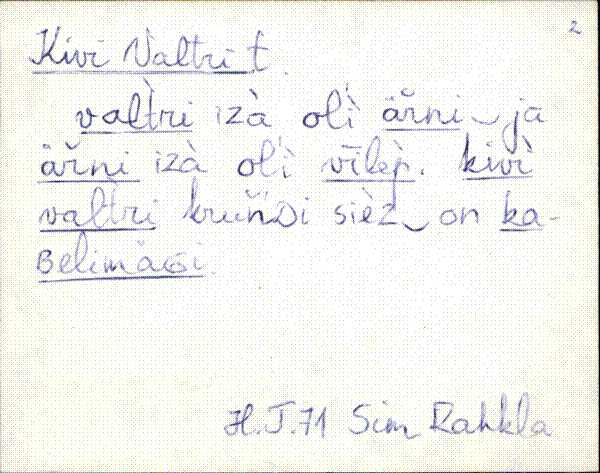 2
Kivi Valtri t.
val̀tri izà olì är̆ni ‿ ja
är̆ni izà olì vīlèp. kivì
val̀tri kruǹ̆Di sièz ‿ on ka-
BelimäGi.
H.J.71 Sim Rahkla